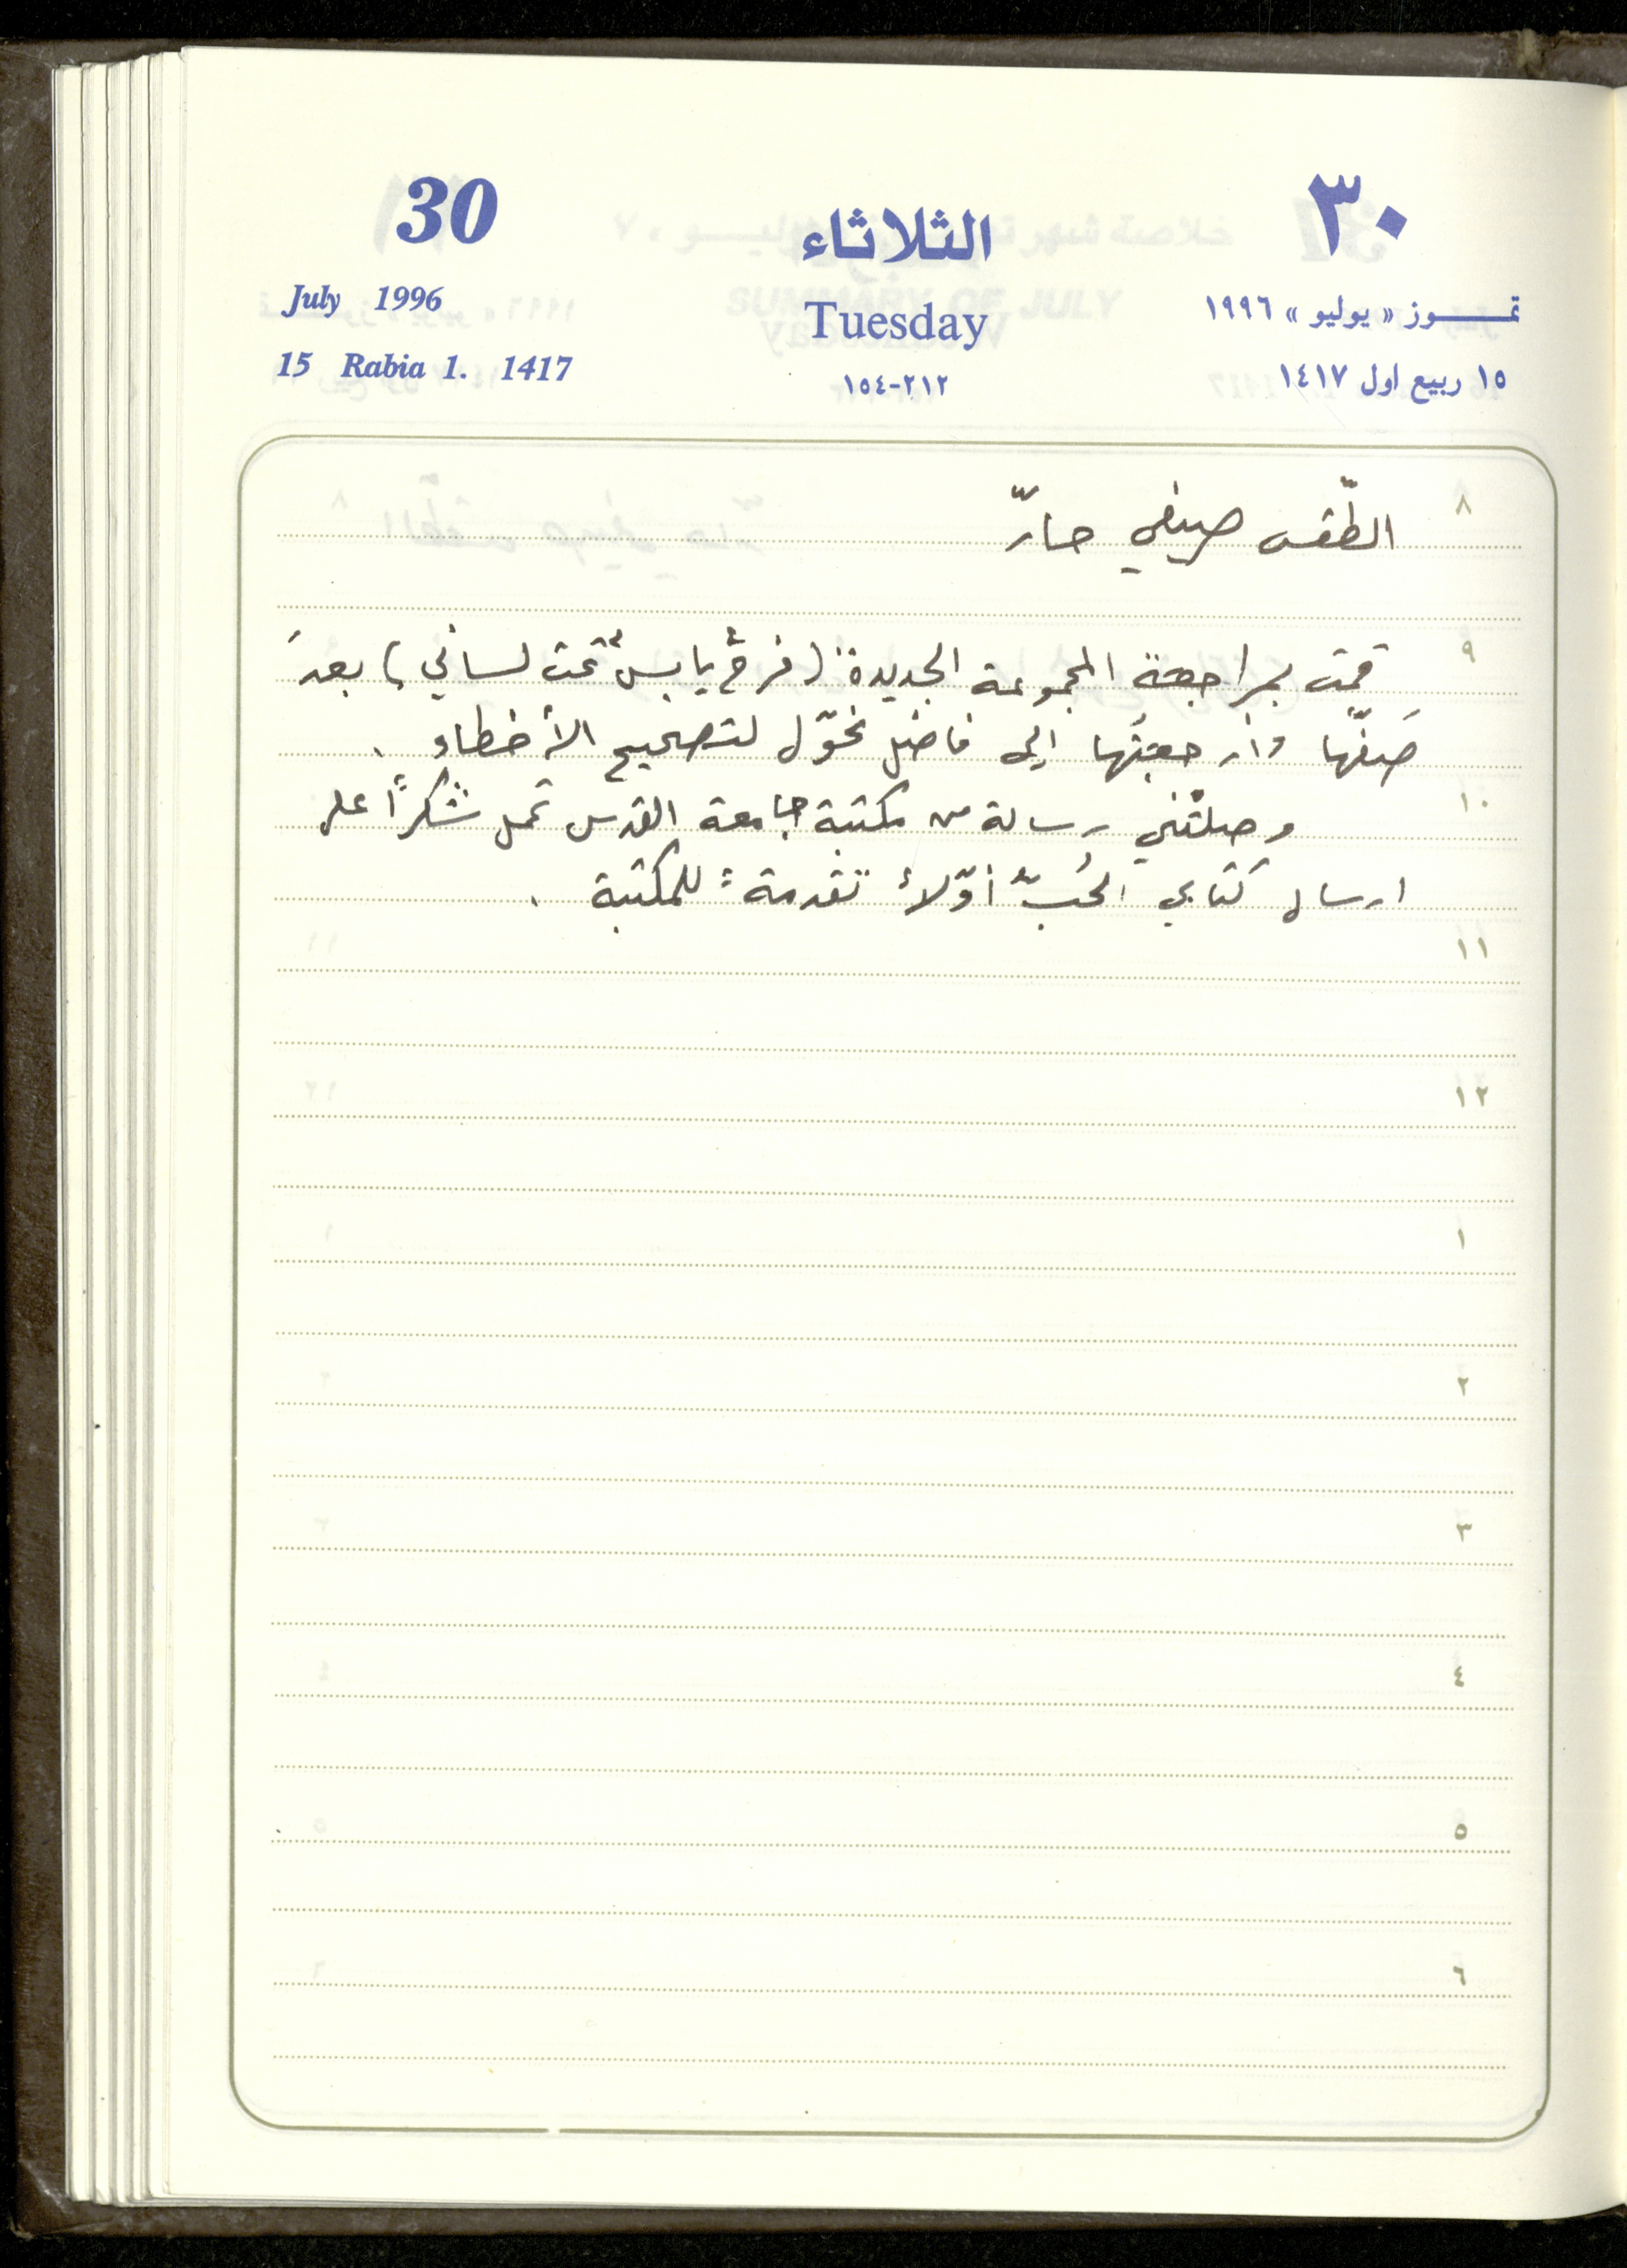 30
الثلاثاء
٣٠
July 1996
Tuesday
تمـــوز « يوليو » ١٩٩٦
15 Rabia 1. 1417
٢١٢-١٥٤
١٥ ربيع اول ١٤١٧
٨
الطّقس صيفي حارّ
٩
قمت بمراجعة المجموعة الجديدة (فرحٌ يابسٌ تحت لساني) بعدَ
صَفّها وأرجعتُها إلى فاضل لتصحيح الأخطاء .
١٠
وصلتْني رسالة من مكتبة جامعة القدس تحمل شكراً على
ارسال كتابي الحُبّ أوّلاً تقدمة للمكتبة .
١١
١٢
١
٢
٣
٤
٥
٦